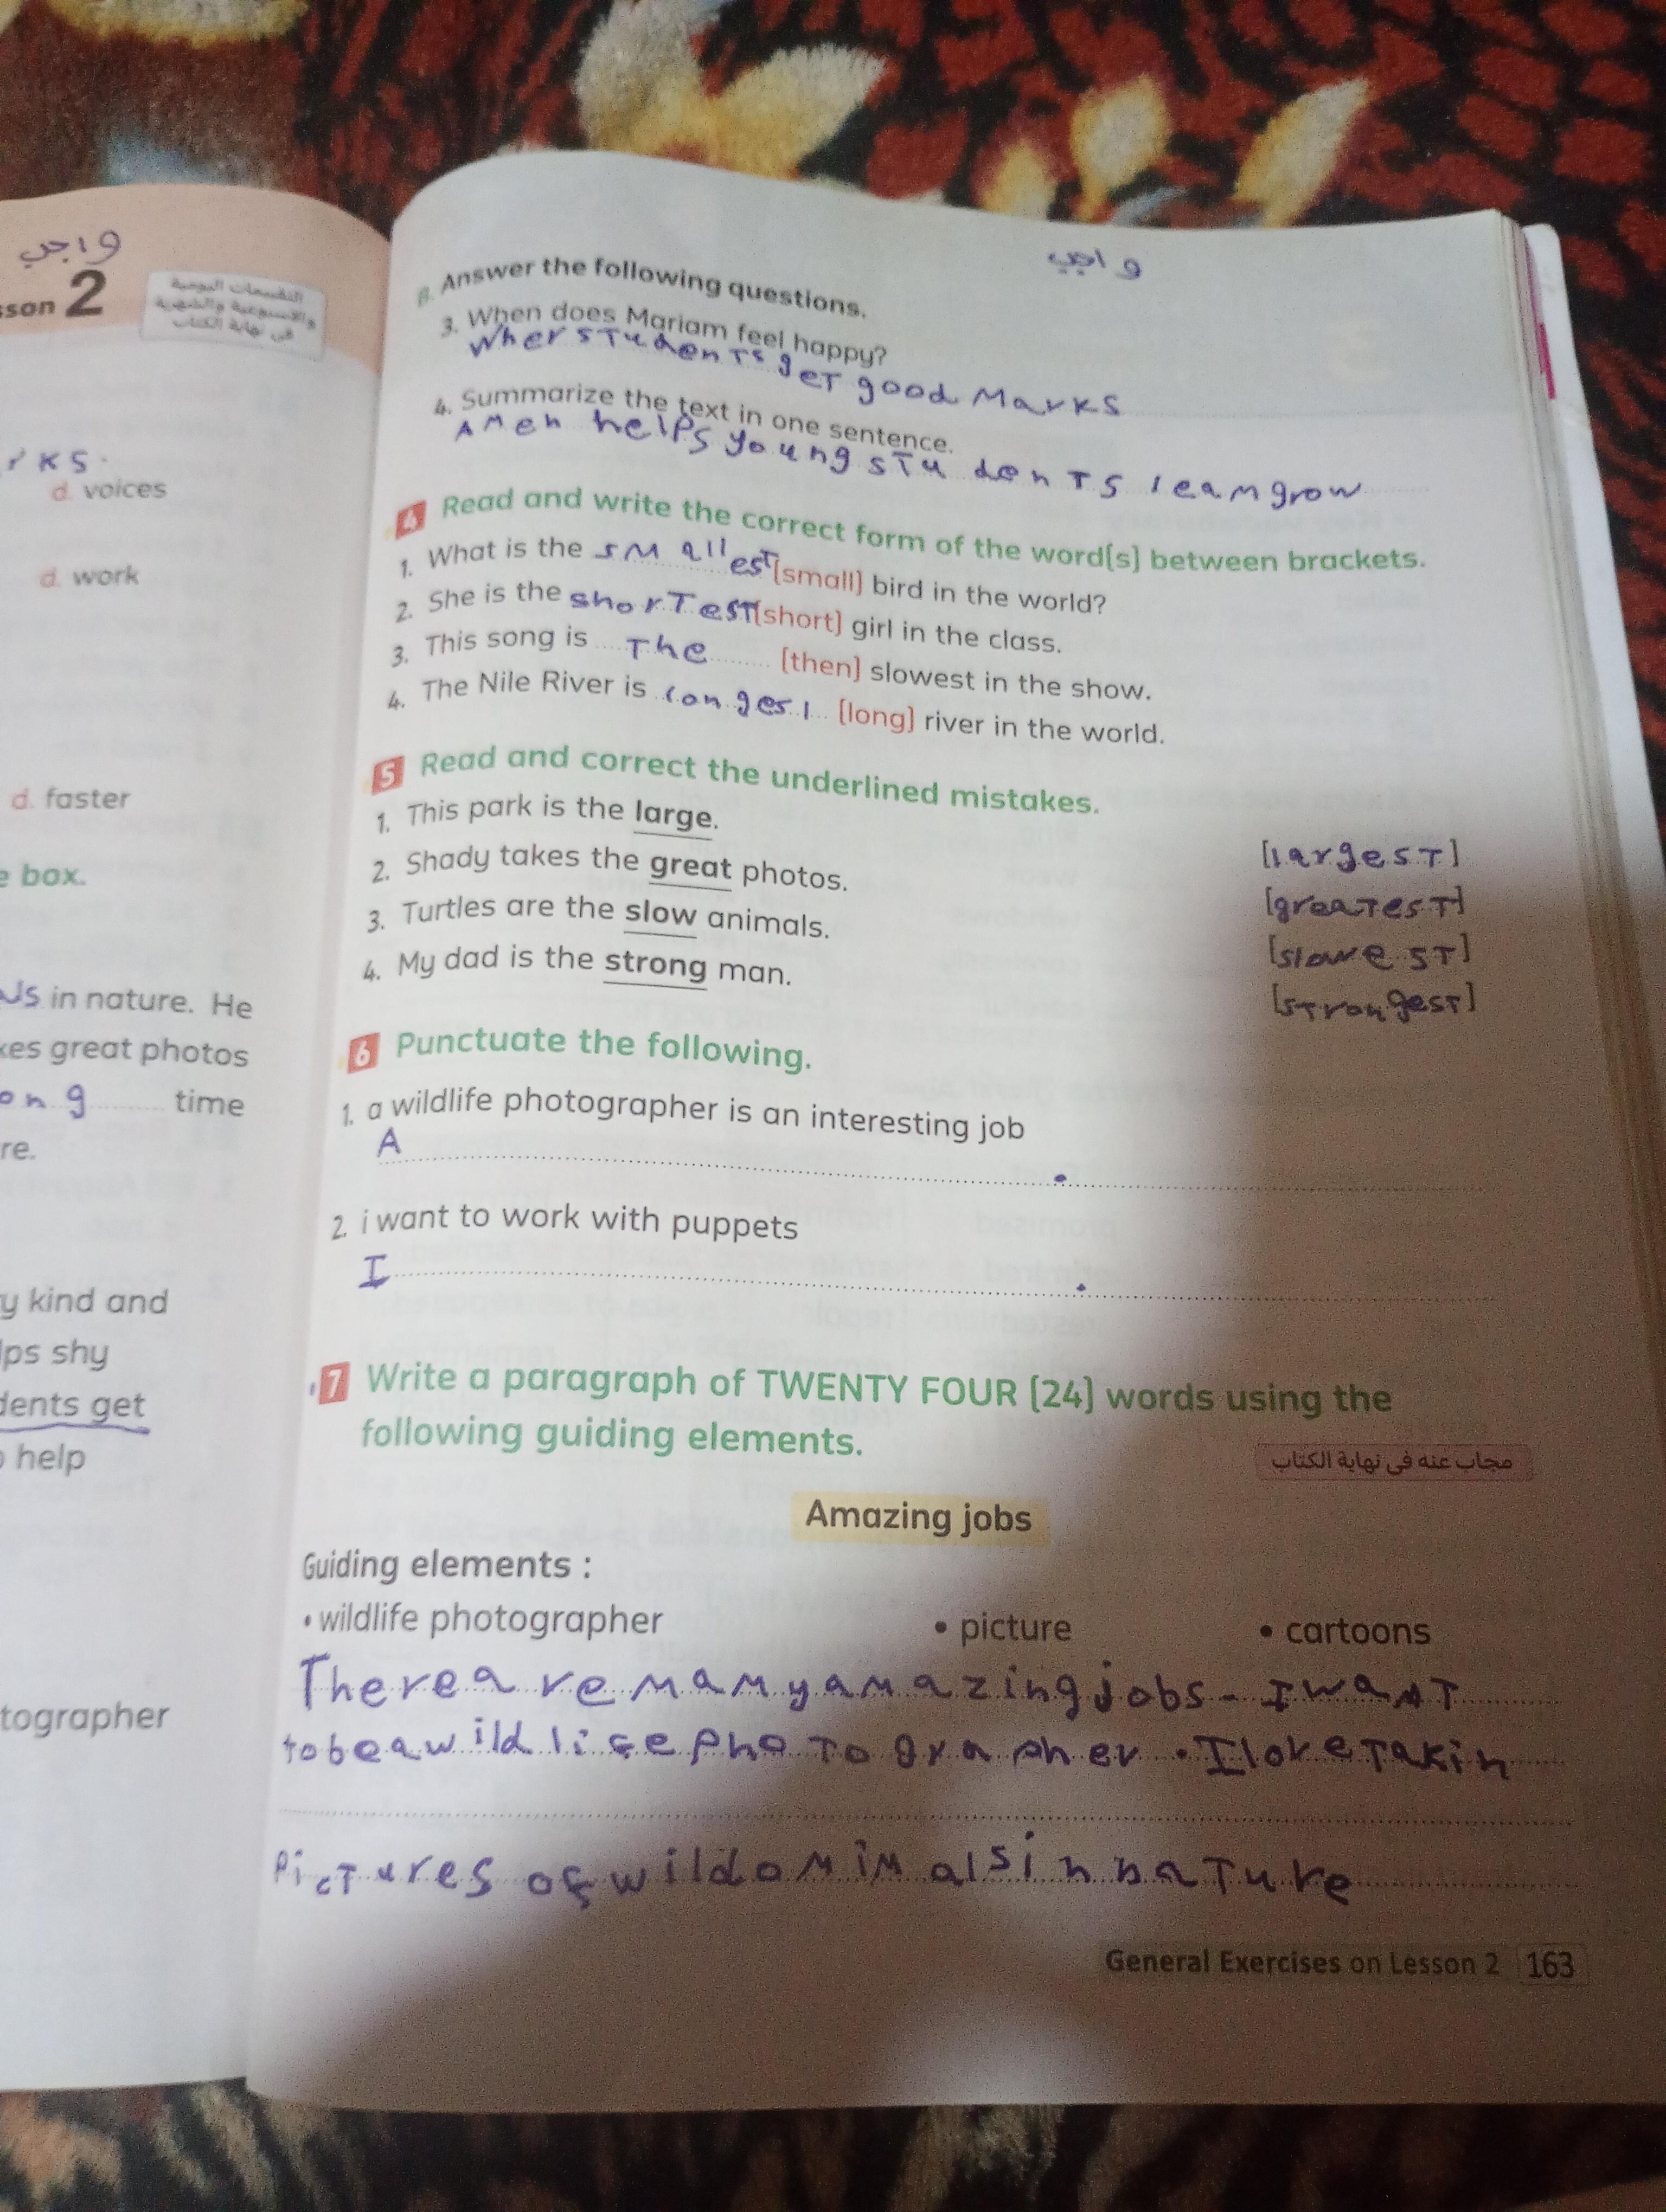 واجب
sson 2
التقييمات اليومية
والأسبوعية والشهرية
فى نهاية الكتاب
rks.
d. voices
d. work
d. faster
e box.
in nature. He
kes great photos
ong time
re.
y kind and
lps shy
dents get
help
tographer
واجب
B. Answer the following questions.
3. When does Mariam feel happy?
wher students get good Marks
4. Summarize the text in one sentence.
A Men helps young students learn grow
4 Read and write the correct form of the word[s] between brackets.
1. What is the smallest [small] bird in the world?
2. She is the shortest [short] girl in the class.
3. This song is The [then] slowest in the show.
4. The Nile River is longest [long] river in the world.
5 Read and correct the underlined mistakes.
1. This park is the large. [largest]
2. Shady takes the great photos. [greatest]
3. Turtles are the slow animals. [slowest]
4. My dad is the strong man. [strongest]
6 Punctuate the following.
1. a wildlife photographer is an interesting job
A .
2. i want to work with puppets
I .
7 Write a paragraph of TWENTY FOUR [24] words using the
following guiding elements.
مجاب عنه فى نهاية الكتاب
Amazing jobs
Guiding elements :
• wildlife photographer • picture • cartoons
There are many amazing jobs - I want
to be a wild life photographer . I love takin
Pictures of wild omimals in nature
General Exercises on Lesson 2 163